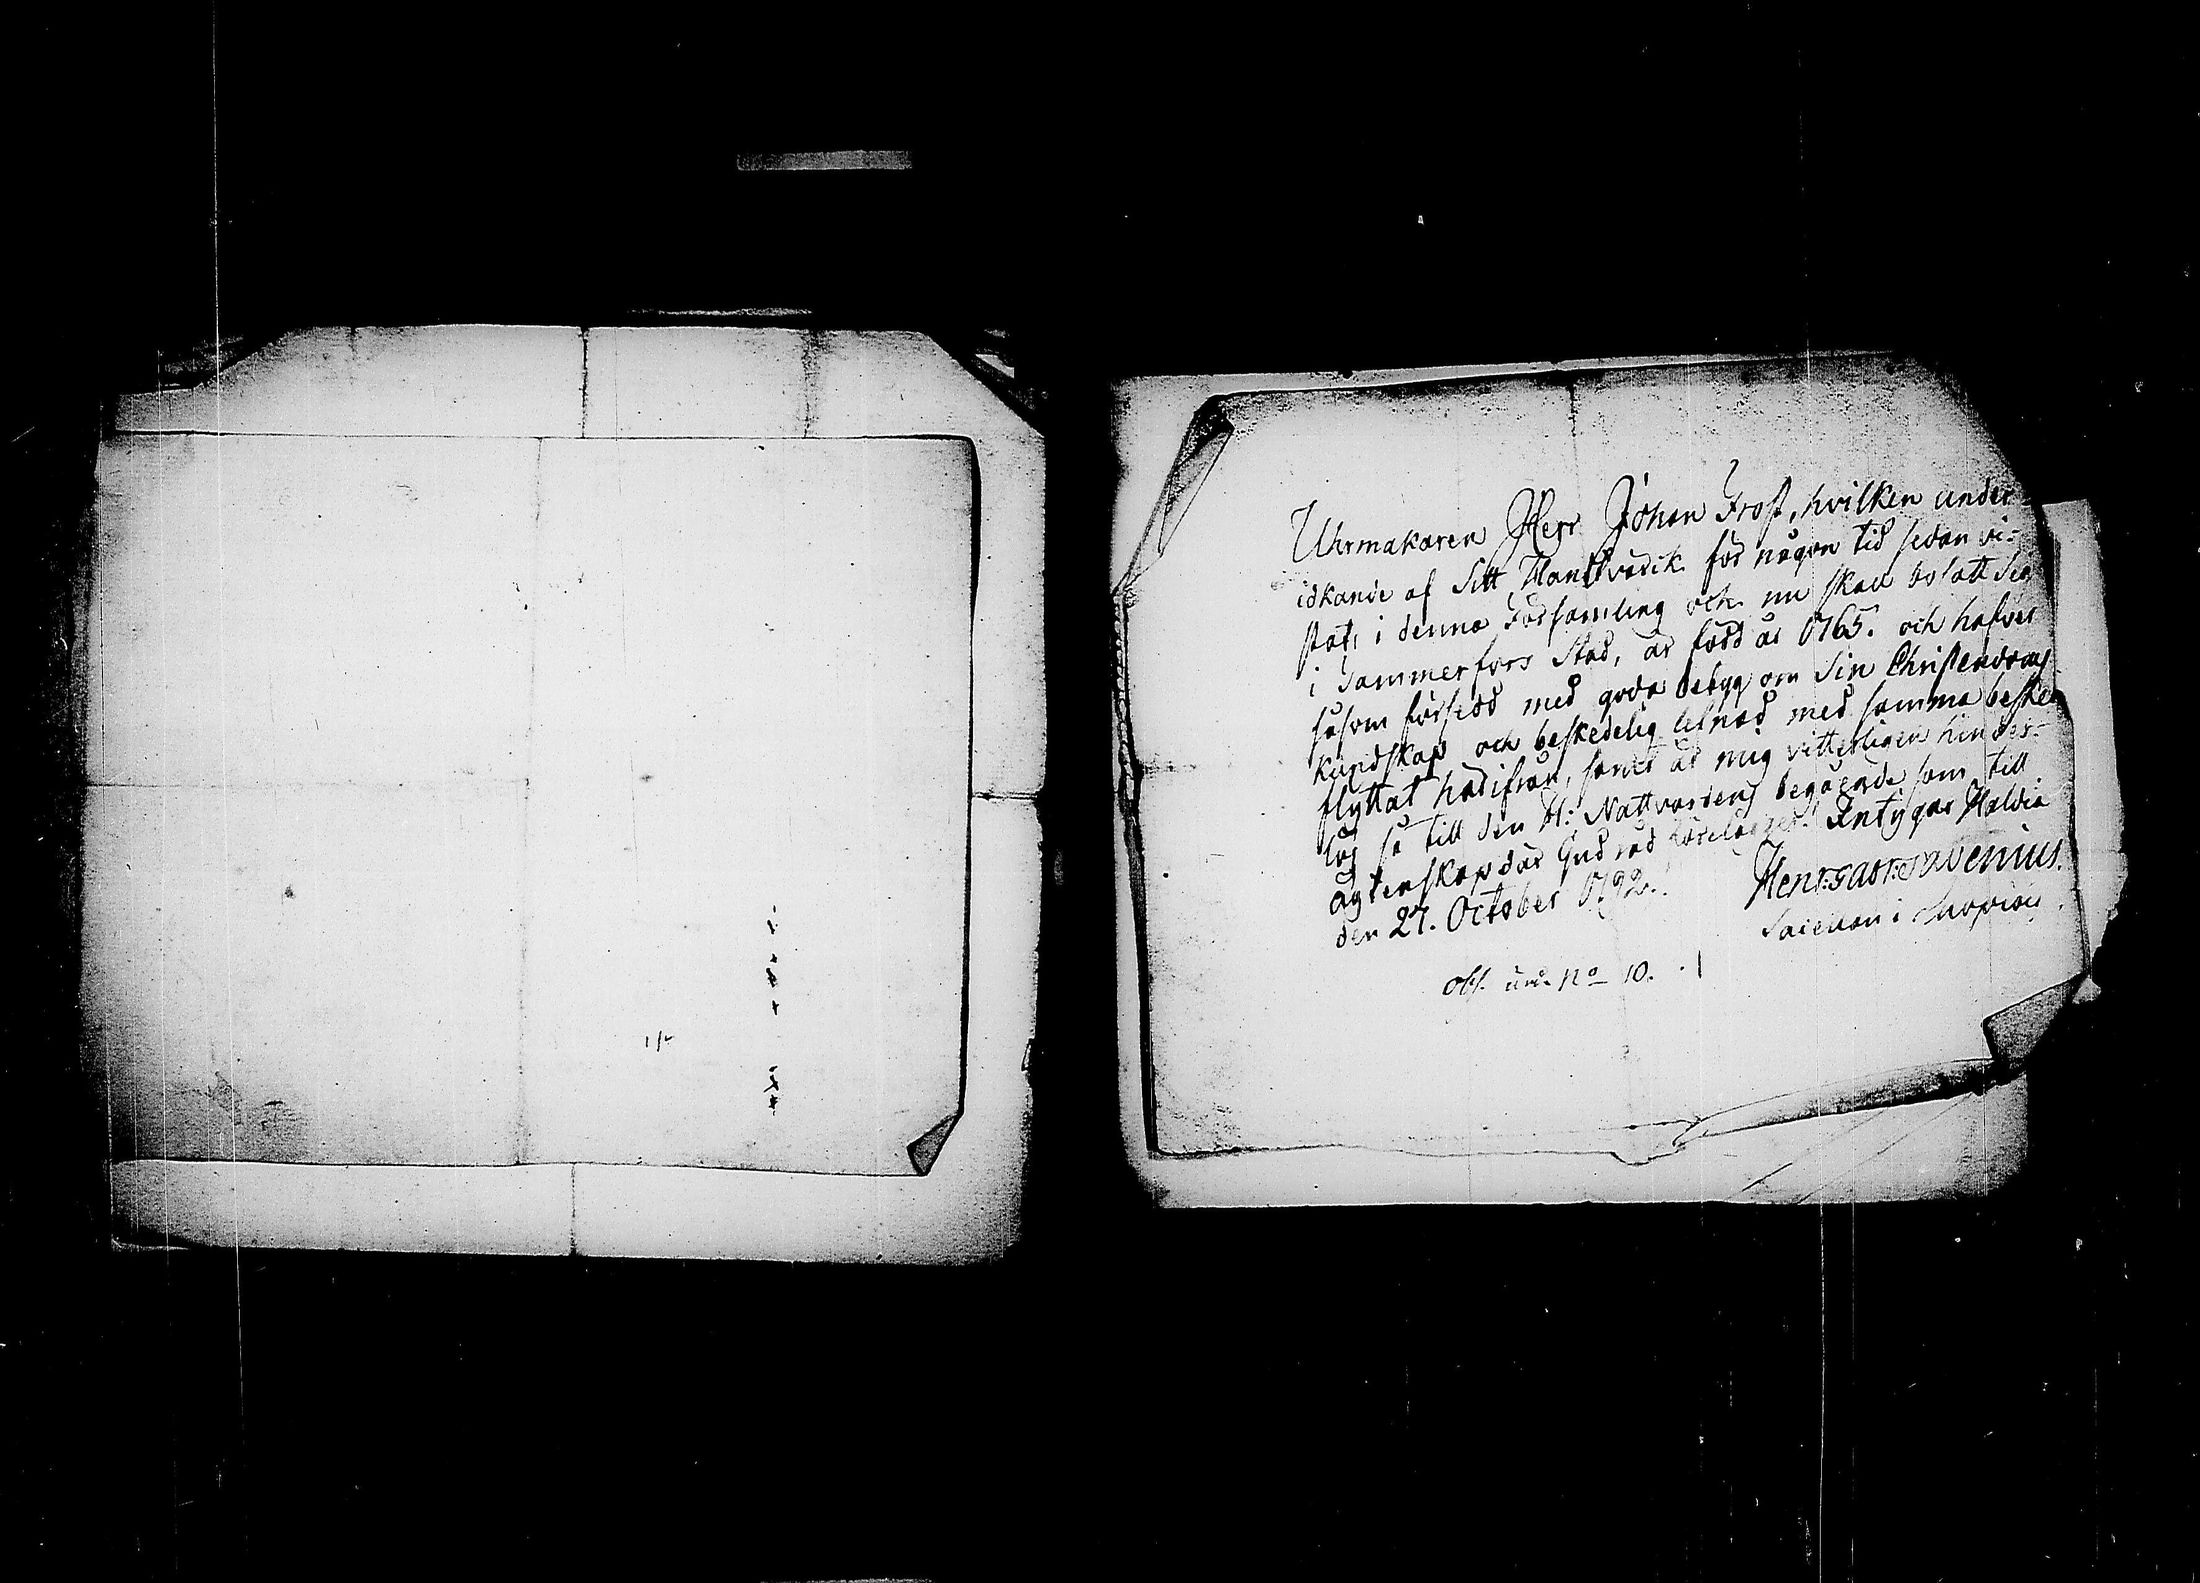 Uhrmakaren Herr Johan Frost, hvilken under
idkande af Sitt Handtvärck för någon tid sedan vi-
stats i denna Församling och nu skall bosatt Sig
i Tammerfors Stad, är född år 1765. och hafver
såsom försedd med goda betyg om Sin Christendoms
kundskap och beskedelig lefnad med samma beske
flyttat härifrån, samt är mig vitterligen hinder-
lös så till den H: Nattvardens begående som till
Ägtenskap där Gud råd Intygar Haldia
den 27. October 1792.
Henr: Gabr:
i
obs. No 10.